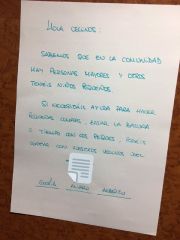 HOLA VECINOS:
SABEMOS QUE EN LA COMUNIDAD
HAY PERSONAS MAYORES Y OTROS
TENÉIS NIÑOS PEQUEÑOS.
SI NECESITÁIS AYUDA PARA HACER
ALGUNAS COMPRAS, BAJAR LA BASURA
O TIRARLA CON LOS PEQUES, PODÉIS
CONTAR CON NUESTROS VECINOS DEL
ALVARO